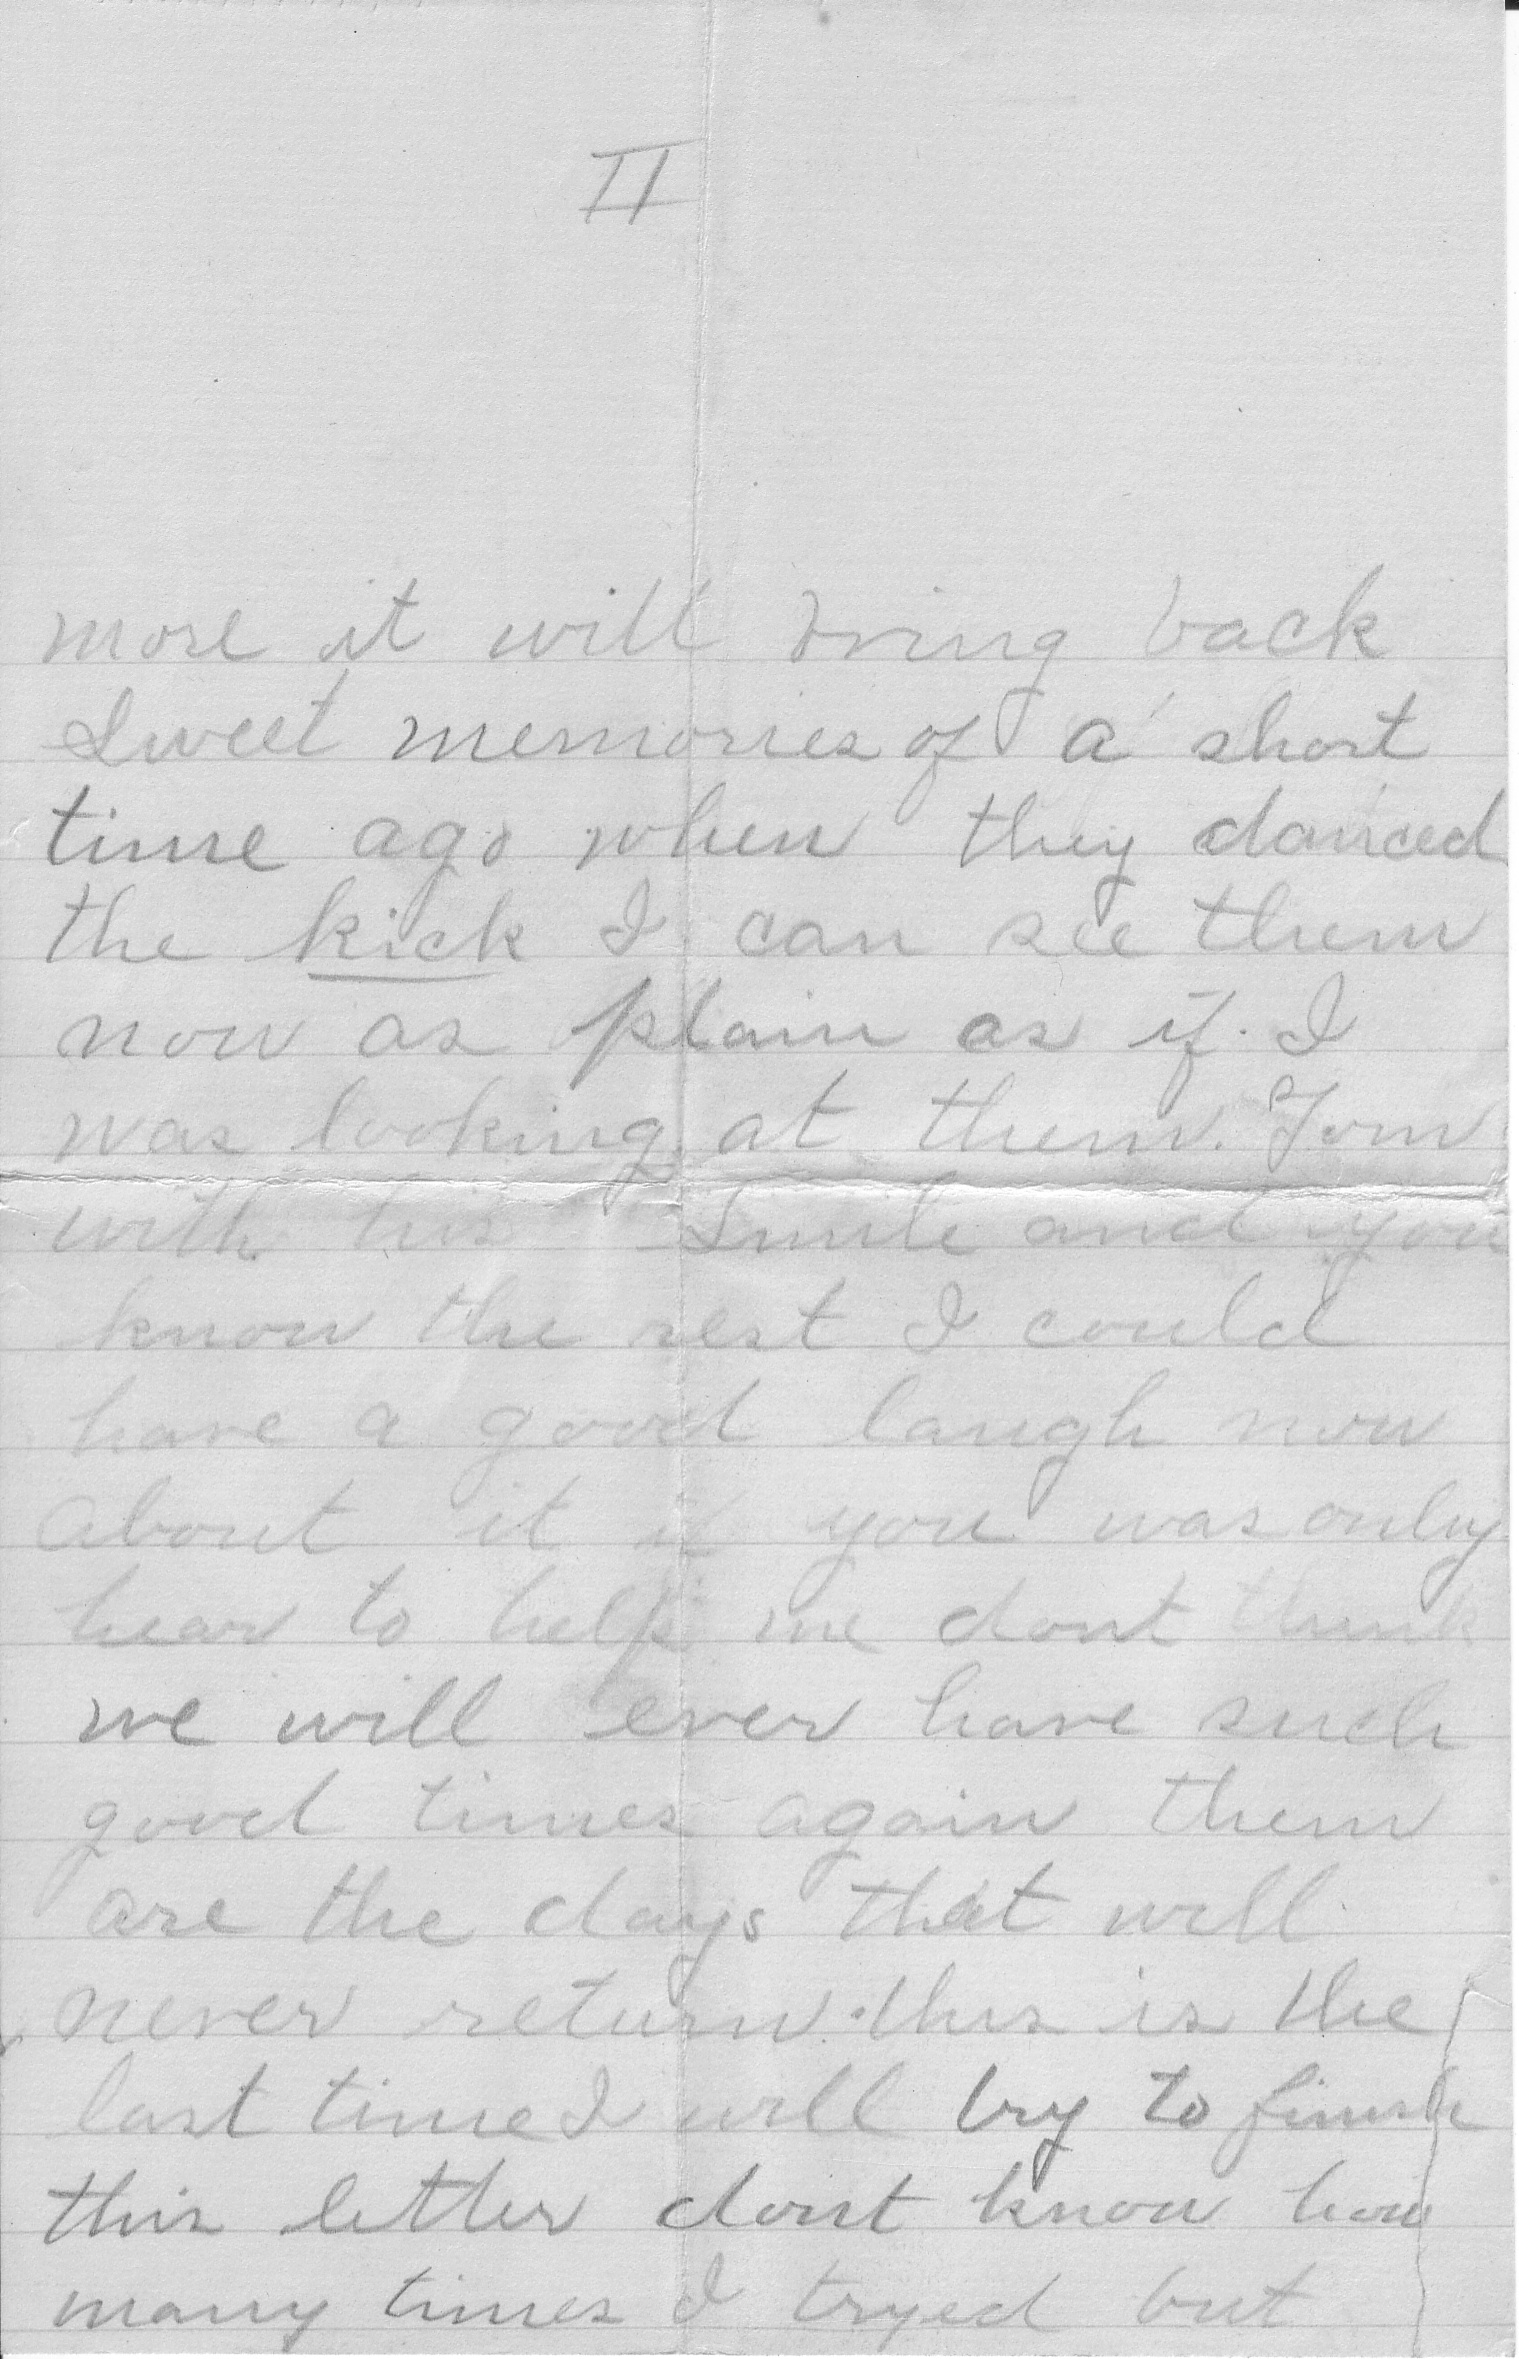 II
more it will bring back
Sweet memories of a short
time ago when they danced
the kick I can see them
now as plain as if I
was looking at them. Tom
with his Smile and you
know the rest I could
have a good laugh now
about it if you was only
hear to help me dont think
we will ever have such
good times again them
are the days that will
never return. this is the
last time I will try to finish
this letter dont know how
many times I tryed but